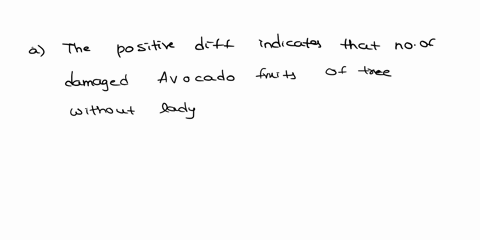 a) The positive diff indicates that no. of
damaged Avocado fruits of tree
without lady